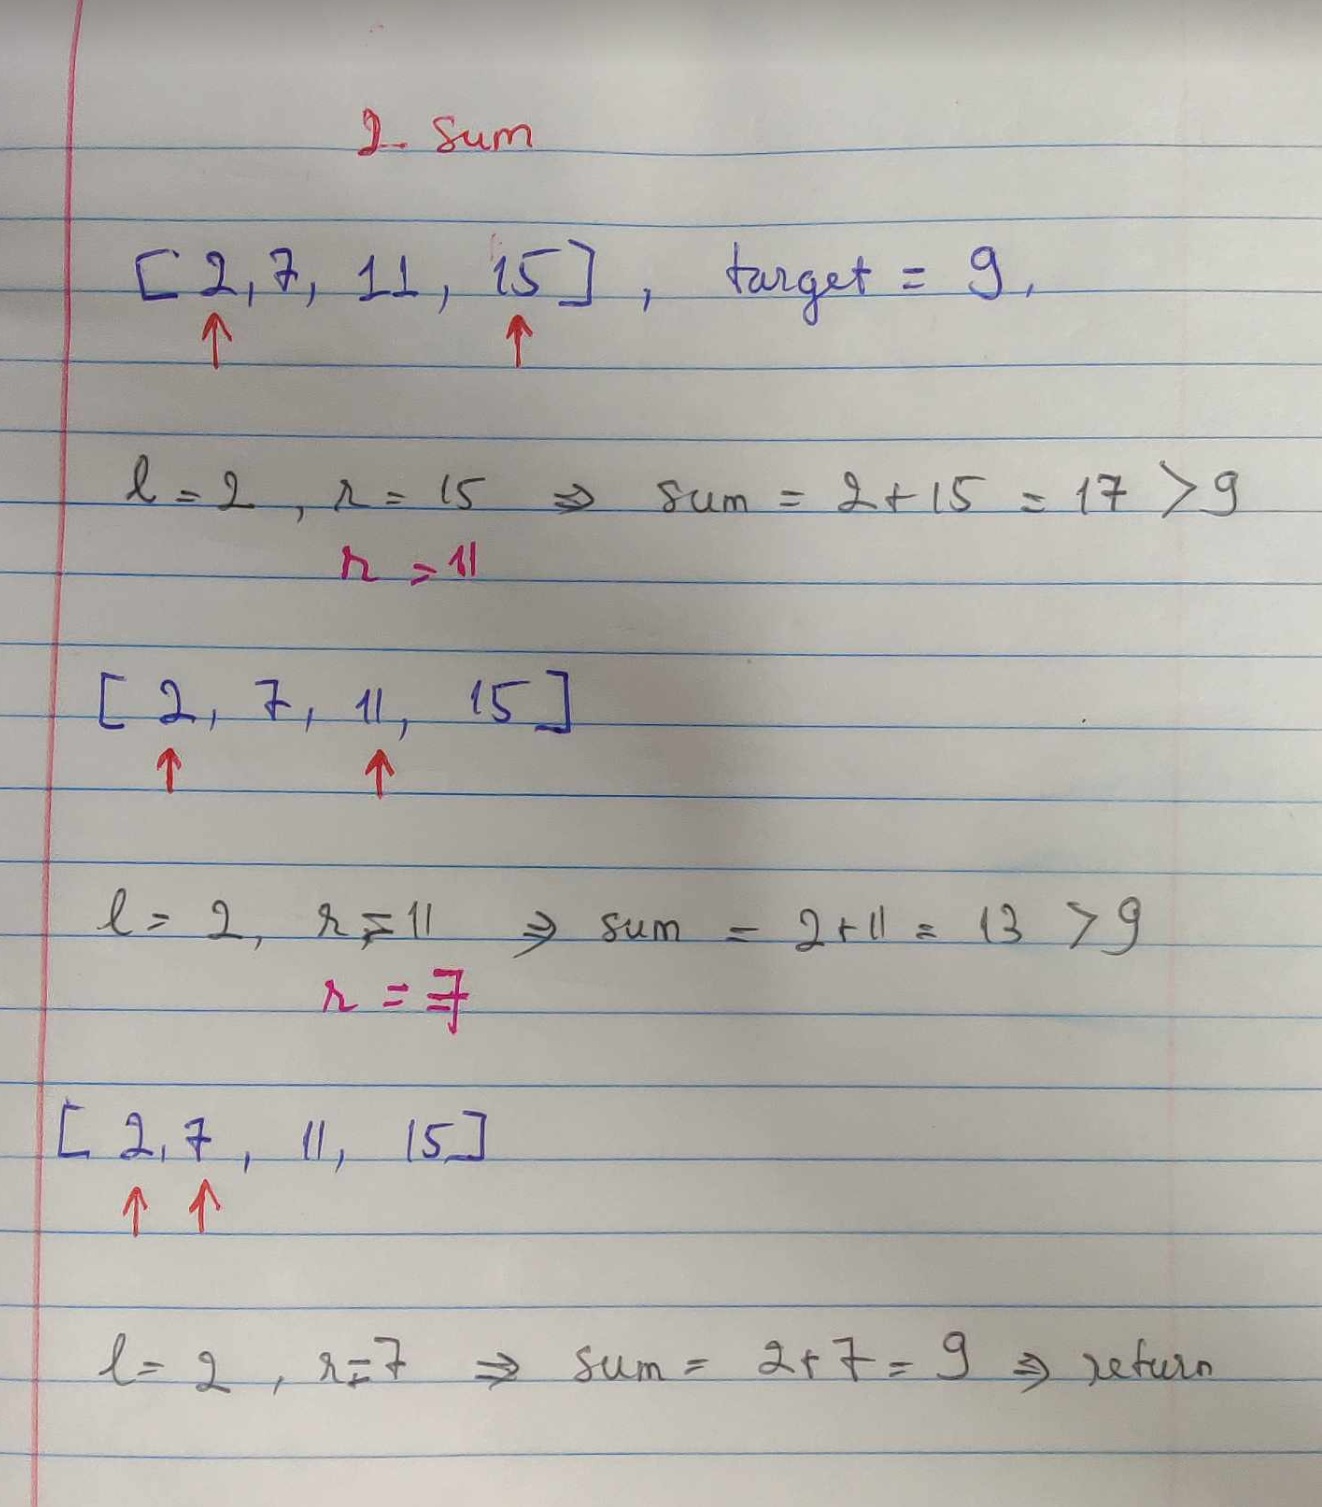 2- Sum
[2, 7, 11, 15], target = 9,
↑ ↑
l = 2, r = 15 ⇒ sum = 2+15 = 17 > 9
r = 11
[2, 7, 11, 15]
↑ ↑
l = 2, r = 11 ⇒ sum = 2+11 = 13 > 9
r = 7
[2, 7, 11, 15]
↑ ↑
l = 2, r = 7 ⇒ sum = 2+7 = 9 ⇒ return